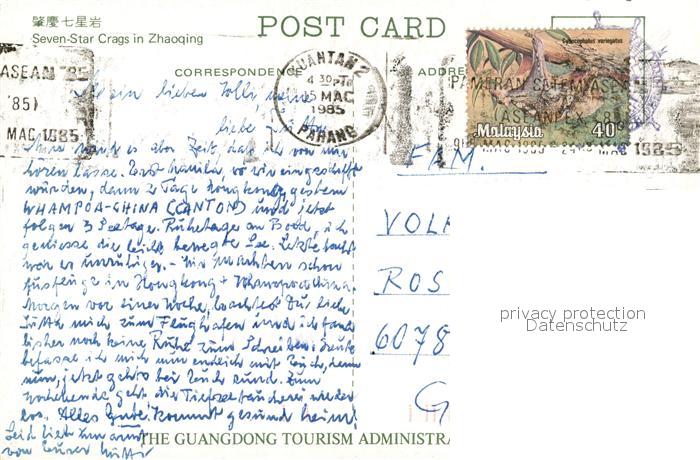 肇慶七星岩
POST CARD
Seven-Star Crags in Zhaoqing
CORRESPONDENCE
ADDRE
ASEAN '85
'85)
MAC 1985
KUANTAN 2
4 30PTG
15 MAC
1985
PAHANG
Cynocephalus variegatus
PAMIRAN SETEM ASE
(ASEANPEX '85)
MAC 1985
Malaysia 40¢
Mein lieber Volli, meine
liebe
wird es aber Zeit, daß ich von mir
hören lasse. Erst Manila, wo wir eingeschifft
wurden, dann 2 Tage Hongkong, gestern
WHAMPOA-CHINA (CANTON) und jetzt
folgen 3 Seetage. Ruhetage an Bord, ich
geniesse die leicht bewegte See. Letzte Nacht
war es unruhiger. - Wir machten schon
Ausflüge in Hongkong + Whampoa China.
Morgen vor einer Woche brachtest Du, liebe
Jutta mich zum Flughafen und ich fand
bisher noch keine Ruhe zum Schreiben. Heute
befasse ich mich nun endlich mit Euch, denn
nun, jetzt gehts bei Euch rund. Zum
Wochenende geht die wieder
los. Alles Gute! Kommt gesund heim!
Seid lieb
von Eurer
FAM.
VOL
ROS
6078
G
privacy protection
Datenschutz
THE GUANGDONG TOURISM ADMINISTRA